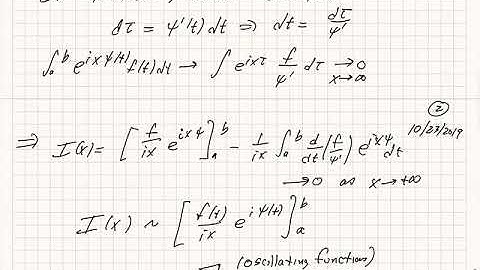 dτ = ψ'(t) dt ⇒ dt = dτ/ψ'
∫ₐᵇ e^{ixψ(t)} f(t) dt → ∫ e^{ixτ} f/ψ' dτ → 0
x→∞
②
10/23/2019
⇒ I(x) = [f/ix e^{ixψ}]ₐᵇ - 1/ix ∫ₐᵇ d/dt (f/ψ') e^{ixψ} dt
→ 0 as x → +∞
I(x) ~ [f(t)/ix e^{iψ(t)}]ₐᵇ
(oscillating functions)